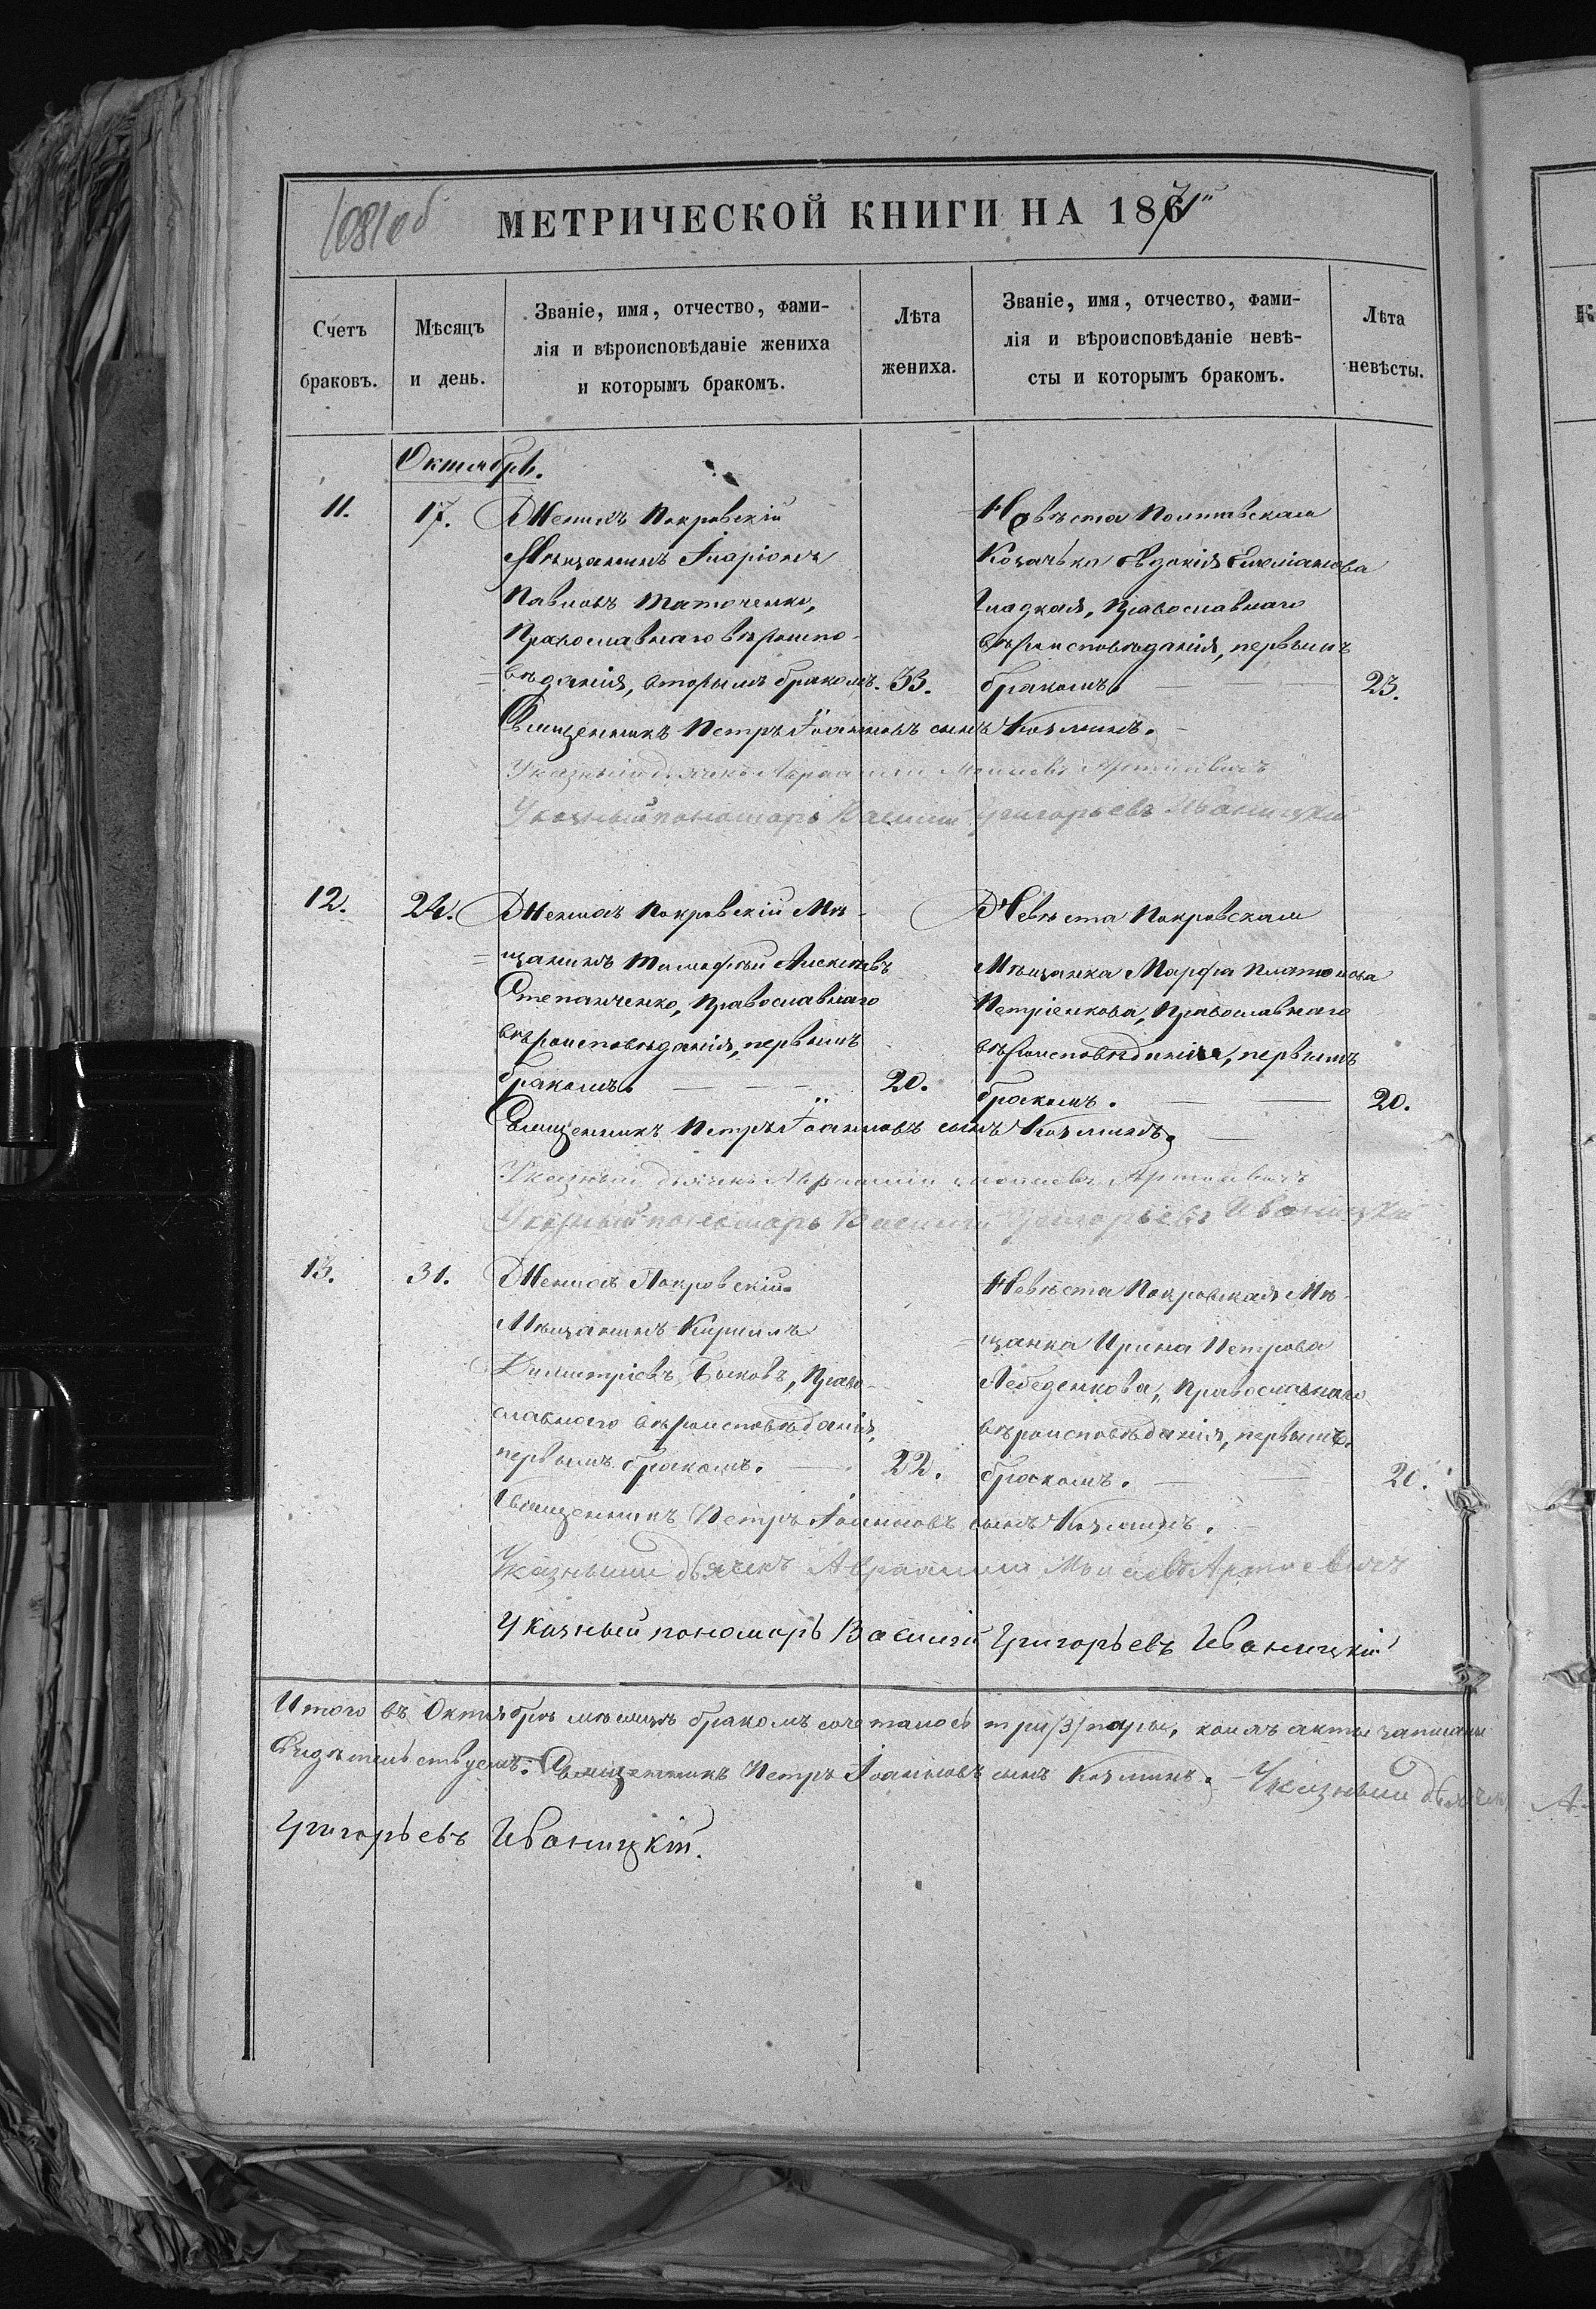 1081об
МЕТРИЧЕСКОЙ КНИГИ НА 1871й
Счетъ браковъ.
Мѣсяцъ и день.
Званіе, имя, отчество, фами-
лія и вѣроисповѣданіе жениха
и которымъ бракомъ.
Лѣта жениха.
Званіе, имя, отчество, фами-
лія и вѣроисповѣданіе невѣ-
сты и которымъ бракомъ.
Лѣта невѣсты.
Октябрь.
11.
17.
Женихъ Покровскій
Мѣщанинъ Іларіонъ
Павловъ Таточенко,
Православнаго вѣроиспо-
=вѣданія, вторымъ бракомъ. 33.
Невѣста Полтавская
Козачька Евдокія Емеліанова
Гладкая, Православнаго
вѣроисповѣданія, первымъ
бракомъ. 23.
Священникъ Петръ Іоанновъ сынъ Козминъ.
Указный дьячекъ Авраамій Моисеевъ
Указный пономарь Василій Григорьевъ Иваницкій
12.
24.
Женихъ Покровскій Мѣ-
=щанинъ Тимофѣй Алексѣевъ
Степанченко, Православнаго
вѣроисповѣданія, первымъ
бракомъ. 20.
Невѣста Покровская
Мѣщанка Марфа Платонова
Петріенкова, Православнаго
вѣроисповѣданія, первымъ
бракомъ. 20.
Священникъ Петръ Іоанновъ сынъ Козминъ.
Указный дьячекъ Авраамій Моисеевъ
Указный пономарь Василій Григорьевъ Иваницкій
13.
31.
Женихъ Покровскій
Мѣщанинъ Кириллъ
Димитріевъ Быковъ, Право-
славнаго вѣроисповѣданія,
первымъ бракомъ. 22.
Невѣста Покровская Мѣ-
=щанка Ирина Петрова
Лебеденкова, Православнаго
вѣроисповѣданія, первымъ
бракомъ. 20.
Священникъ Петръ Іоанновъ сынъ Козминъ.
Указный дьячекъ Авраамій Моисеевъ
Указный пономарь Василій Григорьевъ Иваницкій
Итого въ Октябрѣ мѣсяцѣ бракомъ сочеталось три /3/ пары, коихъ акты записаны
Свидѣтельствуемъ: Священникъ Петръ Іоанновъ сынъ Козминъ. Указный дьячекъ
Григорьевъ Иваницкій.